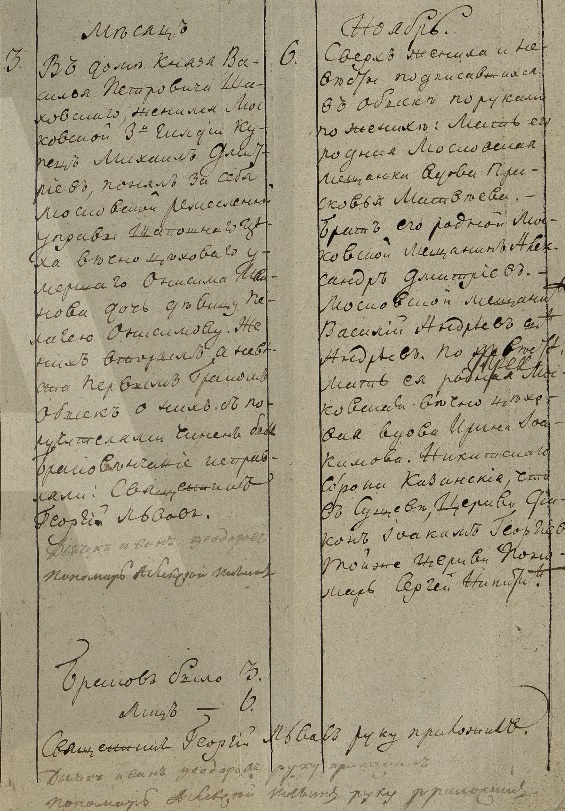 Мѣсяцъ
3.
Въ домѣ Князя Ва-
силья Петровича Ша-
ховскаго, женился Мос-
ковской 3й Гильдіи Ку-
пецъ Михаилъ Дмит-
ріевъ, понялъ за себя
Московской ремесленной
управы Шапошнаго Це-
ха вѣчно цѣховаго у-
мершаго Онисима Ива-
нова дочь дѣвицу Пе-
лагею Онисимову. Же-
нихъ вторымъ а невѣ-
ста первымъ бракомъ
Обыскъ о нихъ съ по-
ручителями чиненъ былъ
браковѣнчаніе исправ-
ляли: Священникъ
Георгій Львовъ.
Дьячокъ иванъ федоровъ
пономарь Алексѣй
Ноябрь.
6.
Сверхъ жениха и не-
вѣсты подписавшихся
въ обыскѣ поруками
по женихѣ: Мать его
родная Московская
мещанка вдова Пра-
сковья Матвѣева. —
братъ его родной Мос-
ковской мещанинъ Алек-
сандръ Дмитріевъ. —
Московской мещанинъ
Василій Андреевъ
Андреевъ. По невѣстѣ.
Мать ея родная Мос-
ковская вѣчно цѣхо-
вая вдова Ирина Іоа-
кимова. Никитскаго
Сорока Казанскія, что
въ Сущевѣ, Церкви Дья-
конъ Іоакимъ Георгіевъ
той же церкви Поно-
марь Сергей Никитинъ.
Браковъ было 3.
лицъ — 6.
Священникъ Георгій Львовъ руку приложилъ.
Дьячокъ иванъ федоровъ руку приложилъ
пономарь Алексѣй руку приложилъ